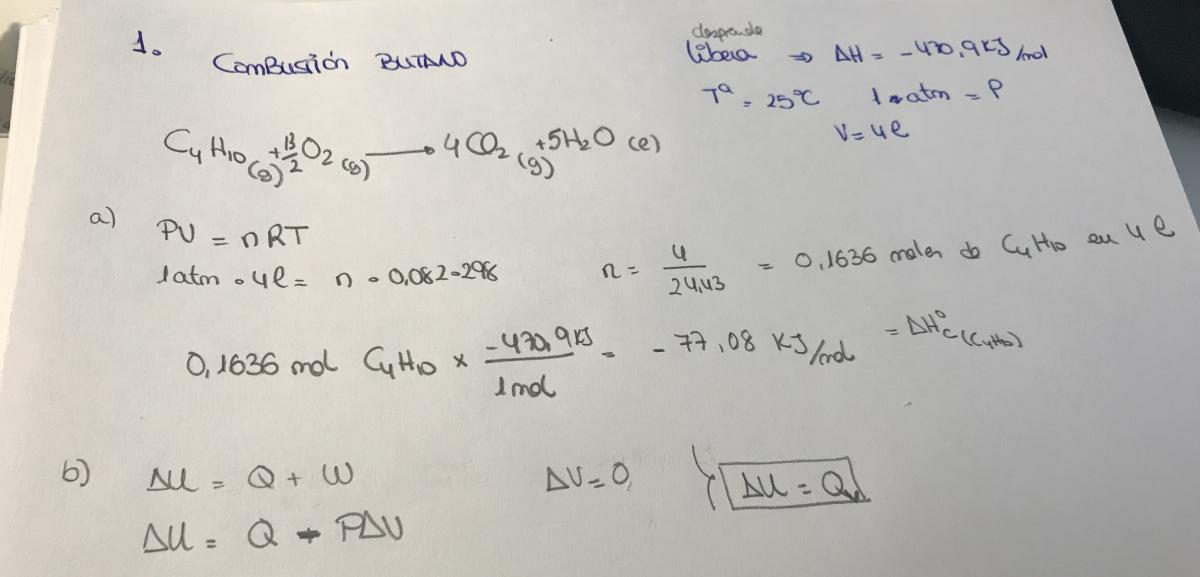 1. Combustión BUTANO
desprende
libera ⇒ ΔH = -470,9 KJ/mol
Tª = 25ºC 1 atm = P
V = 4l
C4H10 (g) + 13/2 O2 (g) ⟶ 4CO2 (g) + 5H2O (e)
a) PV = nRT
1atm · 4l = n · 0,082 · 298 n = 4/24,43 = 0,1636 moles de C4H10 en 4l
0,1636 mol C4H10 × -470,9 KJ/1 mol = -77,08 KJ/mol = ΔHºc (C4H10)
b) ΔU = Q + W ΔV = 0, ΔU = Qv
ΔU = Q - PΔV